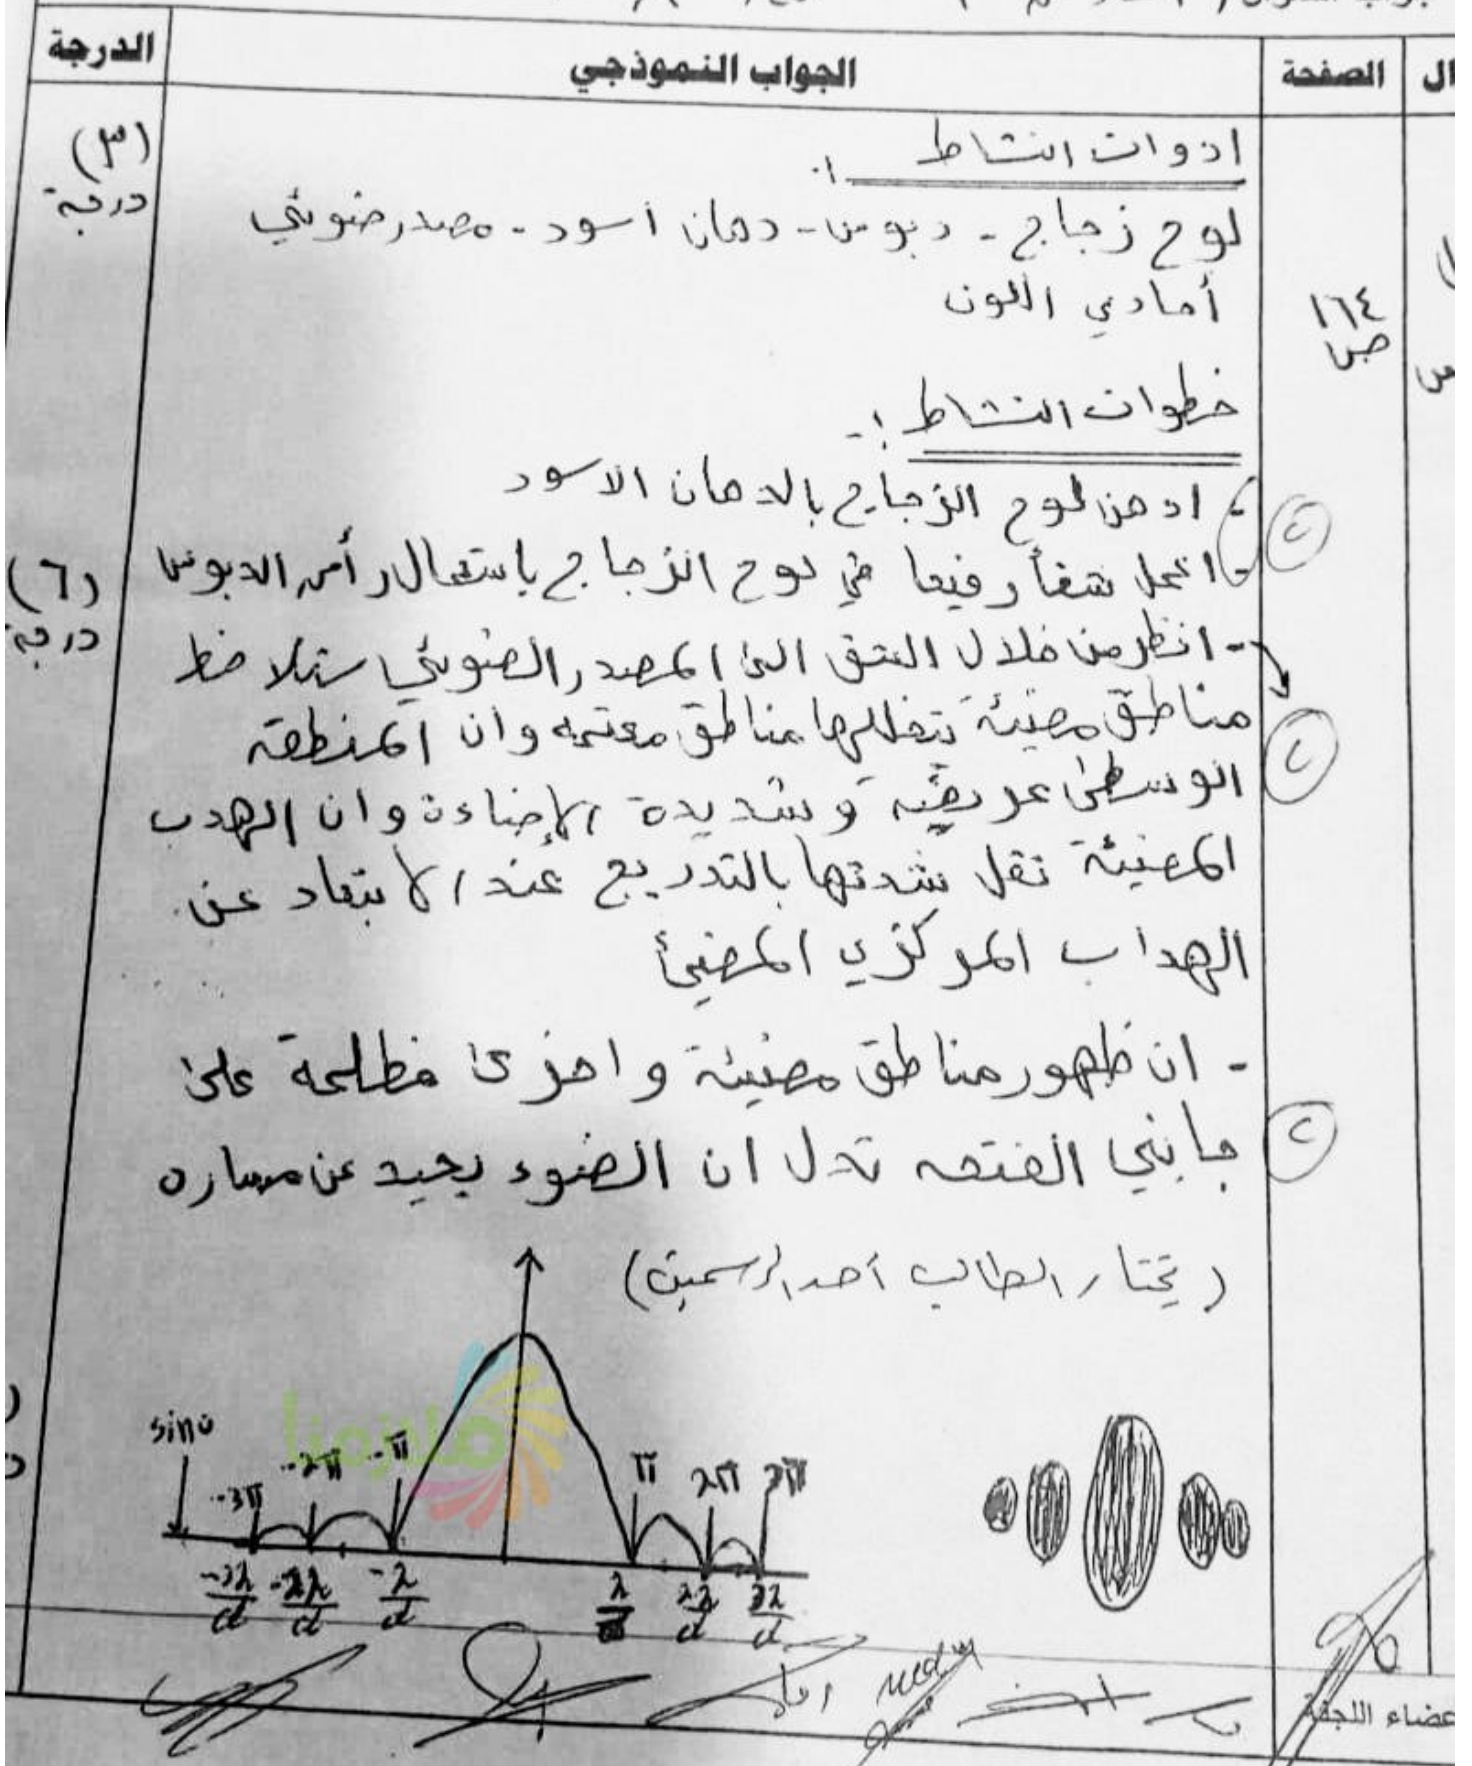 الدرجة
الجواب النموذجي
الصفحة
ال
(٣)
درجة
ادوات النشاط :.
لوح زجاج - دبوس - دهان أسود - مصدر ضوئي
أحادي اللون
١٦٤
ص
خطوات النشاط :-
- ادهن لوح الزجاج بالدهان الاسود
٢
- اعمل شقاً رفيعا في لوح الزجاج باستعمال رأس الدبوس
(٦)
درجة
- انظر من خلال الشق الى المصدر الضوئي ستلاحظ
مناطق مضيئة تتخللها مناطق معتمه وان المنطقة
٢
الوسطى عريضه وشديدة الإضاءة وان الهدب
المضيئة تقل شدتها بالتدريج عند الابتعاد عن
الهداب المركزي المضيئ
- ان ظهور مناطق مضيئة واخرى مظلمة على
جانبي الفتحه تدل ان الضوء يحيد عن مساره
٢
(يختار الطالب أحد الرسمين)
ملازمنا
sinθ
-3π -2π -π π 2π 3π
-3λ/d -2λ/d -λ/d λ/d 2λ/d 3λ/d
عضاء اللجنة